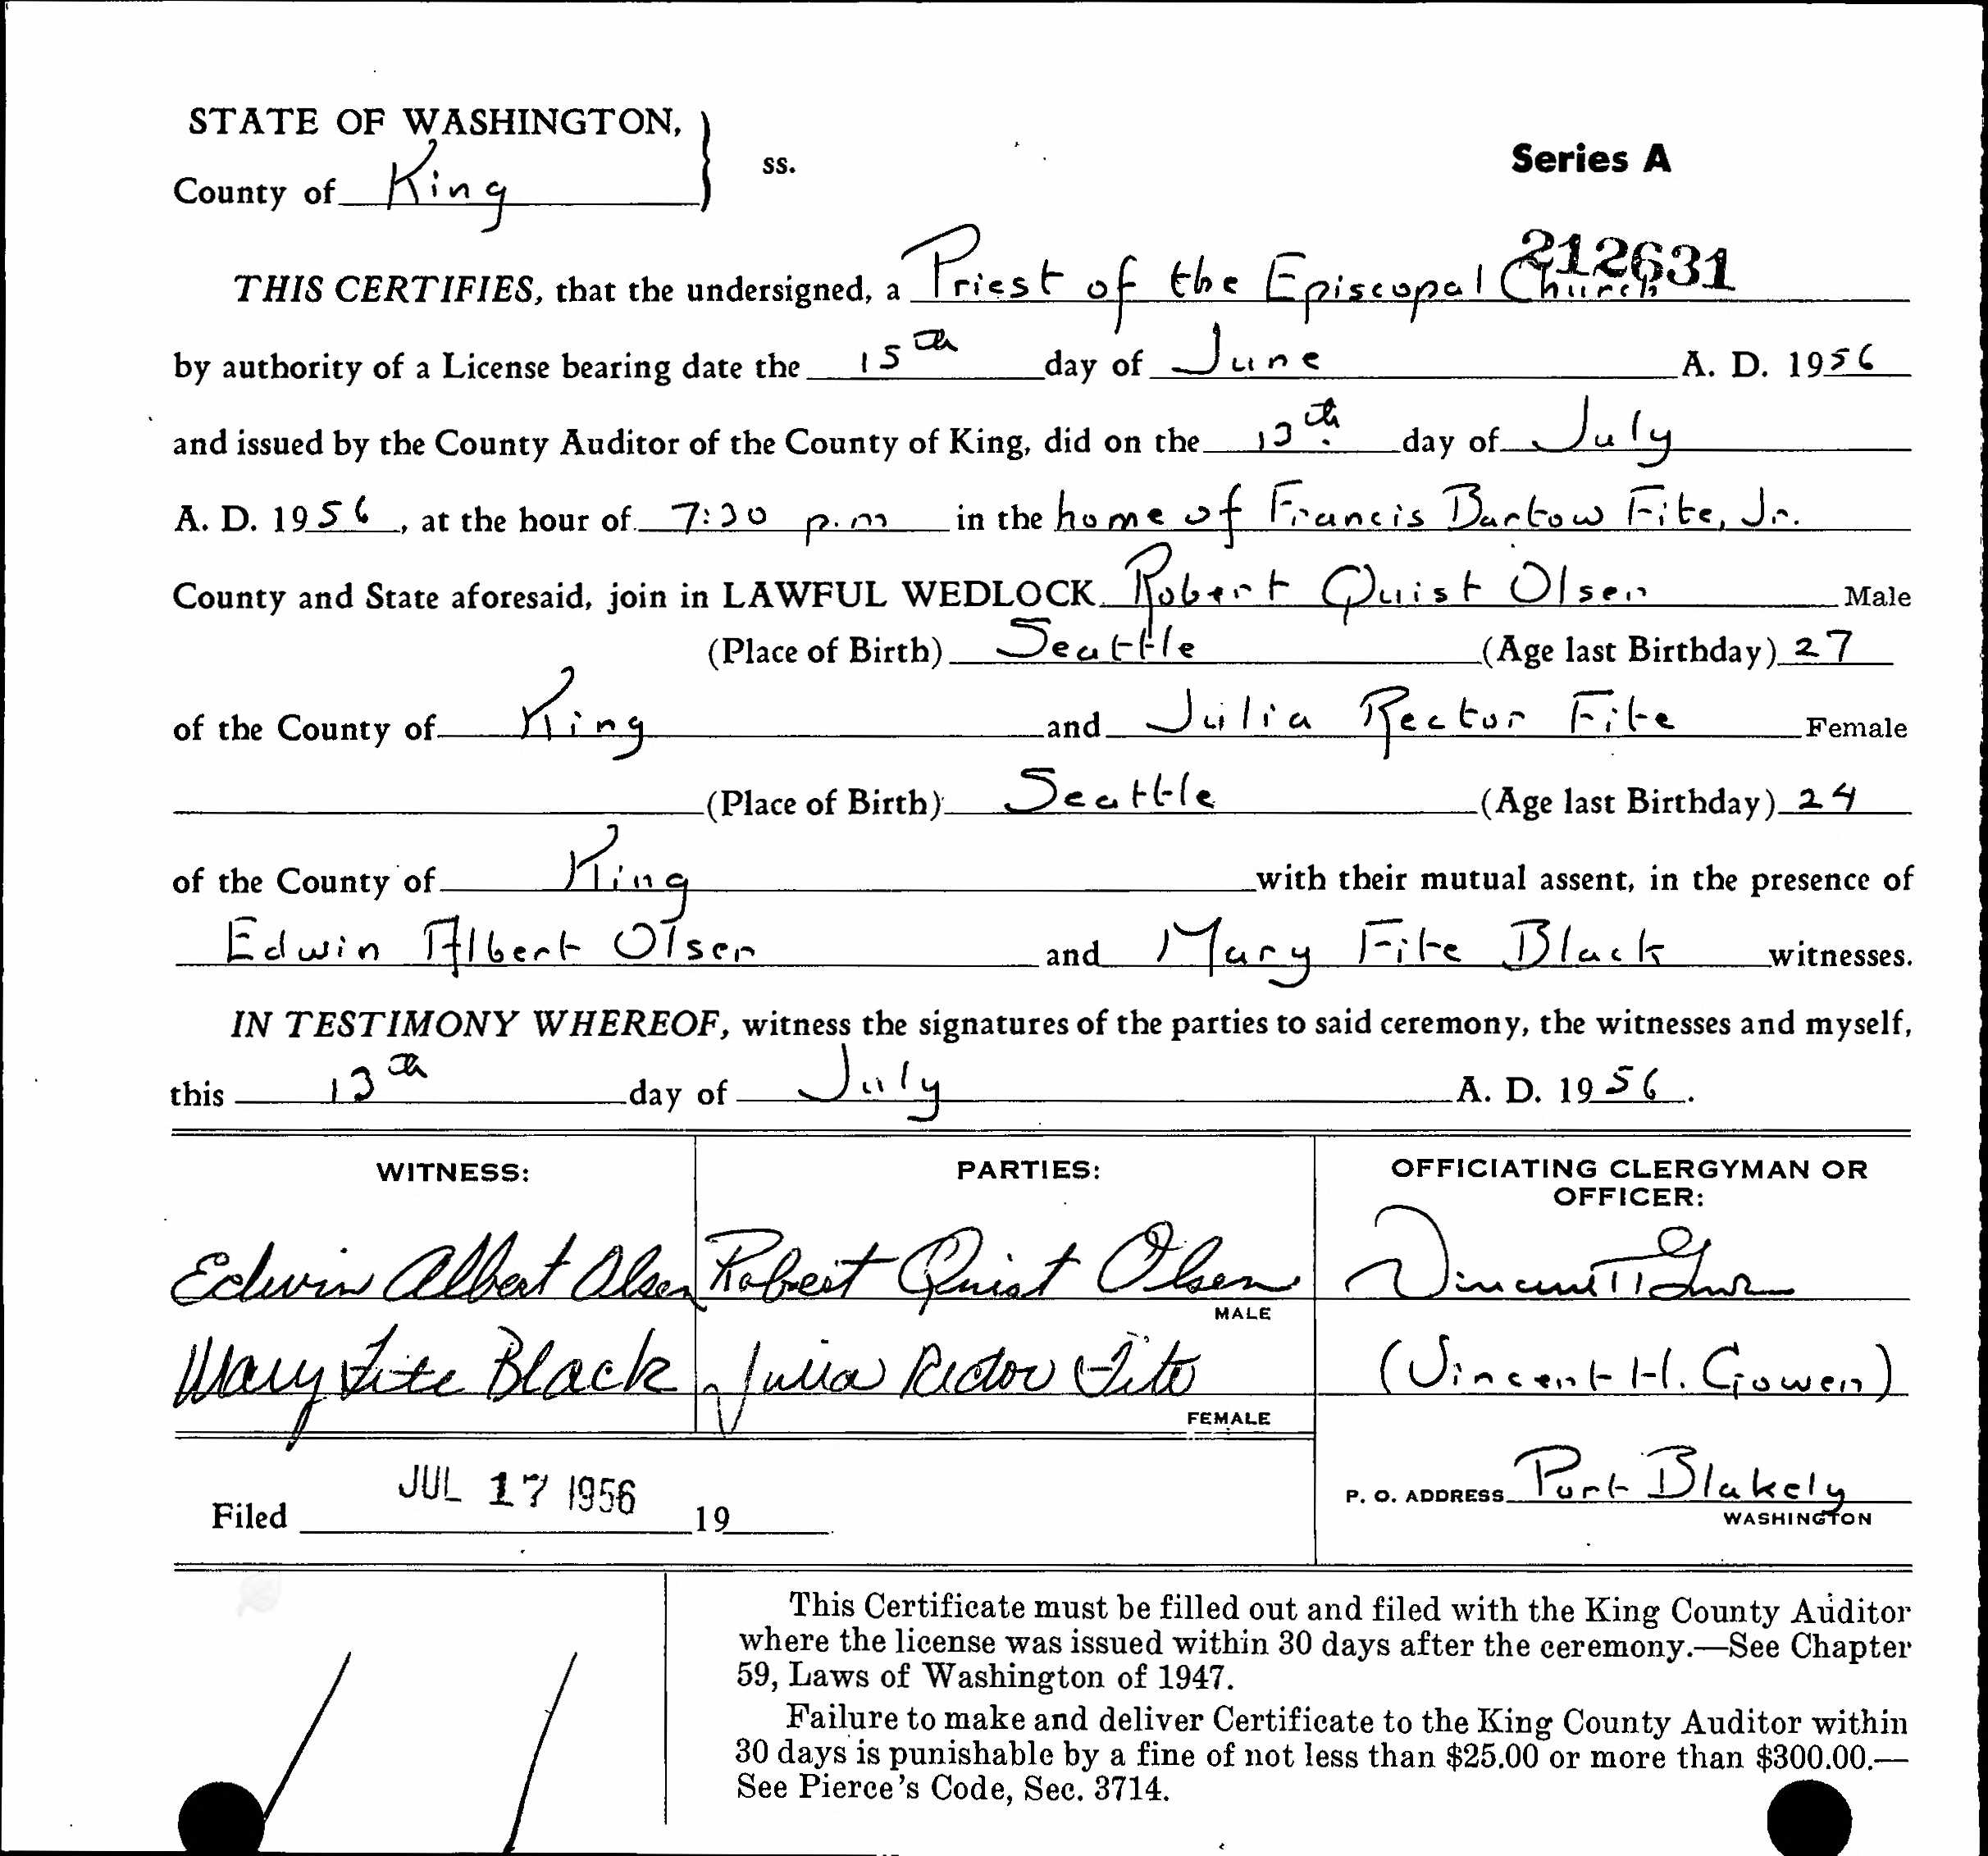 STATE OF WASHINGTON,
ss.
Series A
County of King
212631
THIS CERTIFIES, that the undersigned, a Priest of the Episcopal Church
by authority of a License bearing date the 15th day of June A. D. 1956
and issued by the County Auditor of the County of King, did on the 13th day of July
A. D. 1956, at the hour of 7:30 p.m in the home of Francis Bartow Fite, Jr.
County and State aforesaid, join in LAWFUL WEDLOCK Robert Quist Olsen Male
(Place of Birth) Seattle (Age last Birthday) 27
of the County of King and Julia Rector Fite Female
(Place of Birth) Seattle (Age last Birthday) 24
of the County of King with their mutual assent, in the presence of
Edwin Albert Olsen and Mary Fite Black witnesses.
IN TESTIMONY WHEREOF, witness the signatures of the parties to said ceremony, the witnesses and myself,
this 13th day of July A. D. 1956.
WITNESS:
PARTIES:
OFFICIATING CLERGYMAN OR
OFFICER:
Edwin Albert Olsen
Robert Quist Olsen
Vincent H. Gowen
MALE
Mary Fite Black
Julia Rector Fite
(Vincent H. Gowen)
FEMALE
Filed JUL 17 1956 19
P. O. ADDRESS Port Blakely
WASHINGTON
This Certificate must be filled out and filed with the King County Auditor
where the license was issued within 30 days after the ceremony.—See Chapter
59, Laws of Washington of 1947.
Failure to make and deliver Certificate to the King County Auditor within
30 days is punishable by a fine of not less than $25.00 or more than $300.00.—
See Pierce's Code, Sec. 3714.